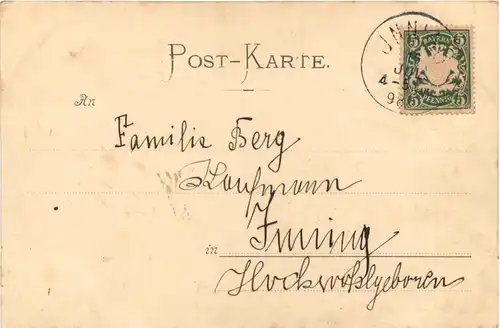 POST-KARTE.
JNNI
BAYERN
5 5
4-5
98
5 PFENNIG 5
An
Familie Berg
Kaufmann
in Inning
Hochwohlgeboren